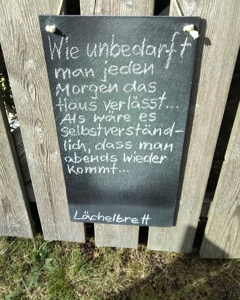 Wie unbedarft
man jeden
Morgen das
Haus verlässt...
Als wäre es
selbstverständ-
lich, dass man
abends wieder
kommt...
Lächelbrett